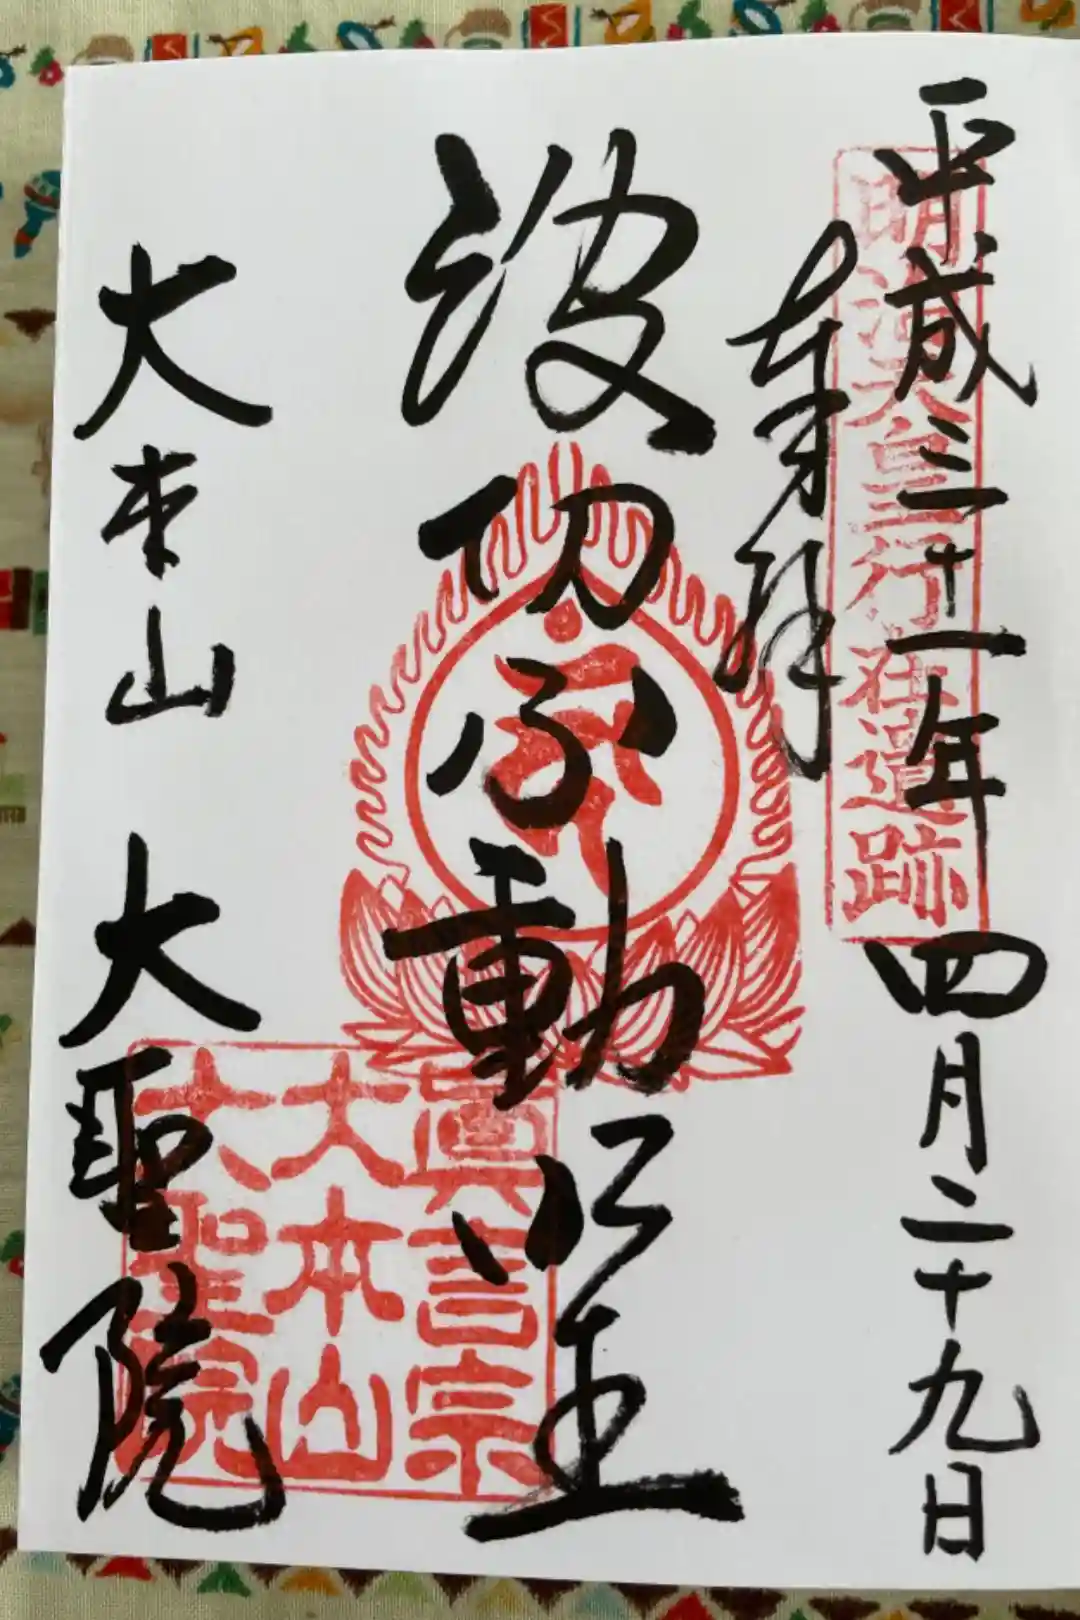 平成三十一年四月二十九日
明治天皇行在遺跡
奉拝
波切不動明王
眞言宗
大本山
大聖院
大本山 大聖院